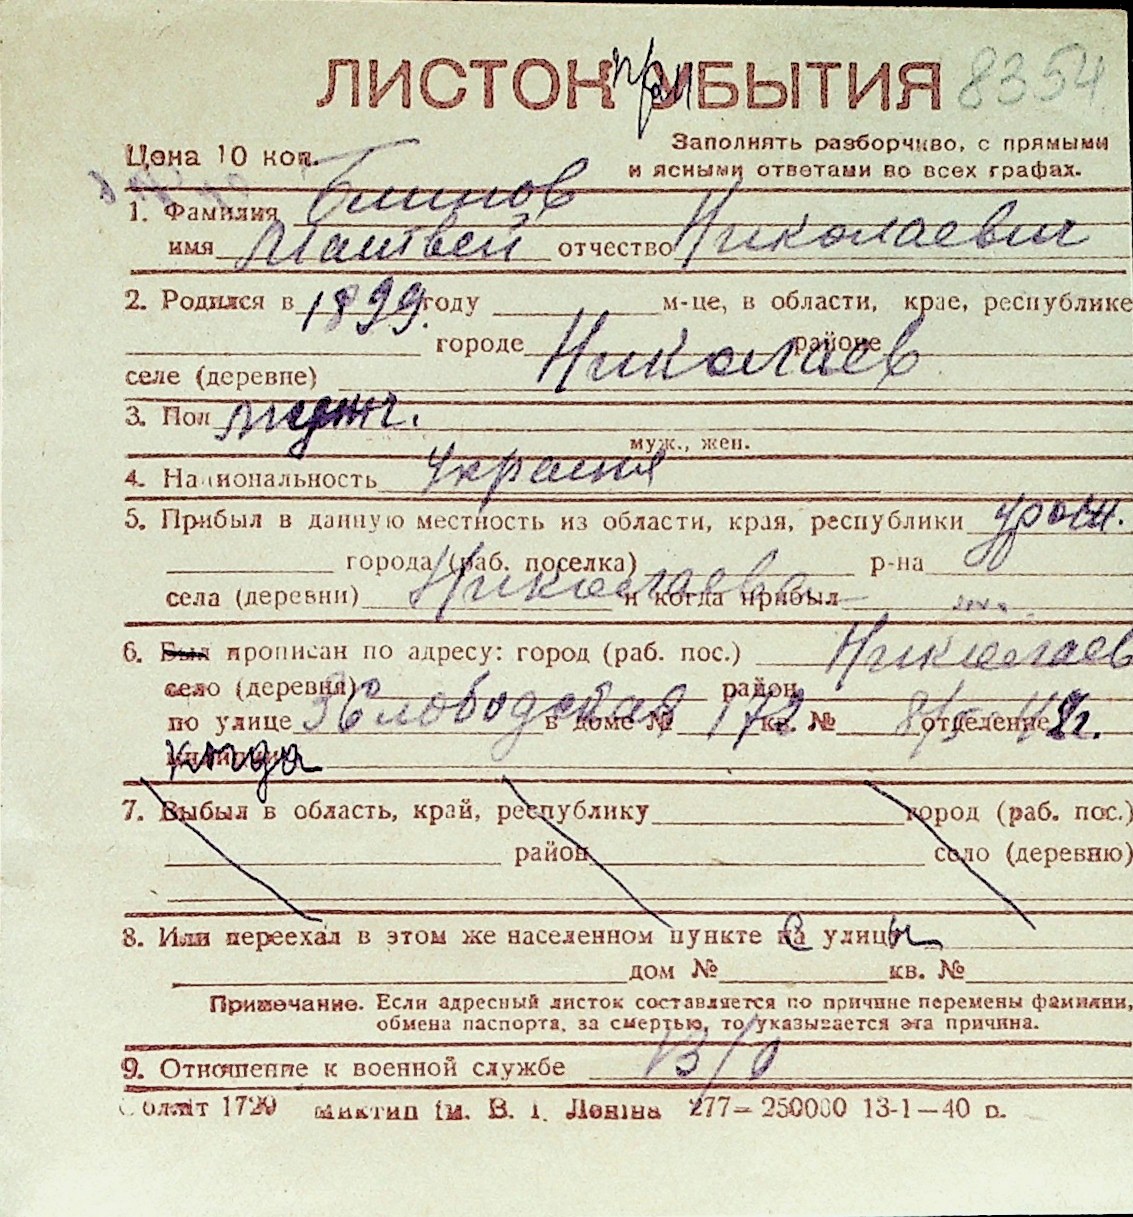 ЛИСТОК при БЫТИЯ 8354
Цена 10 коп. Заполнять разборчиво, с прямыми
и ясными ответами во всех графах.
1. Фамилия Блинов
имя Матвей отчество Николаевич
2. Родился в 1899. году м-це, в области, крае, республике
городе Николаев районе
селе (деревне)
3. Пол мужч.
муж., жен.
4. Национальность украиня
5. Прибыл в данную местность из области, края, республики урож.
города (раб. поселка) р-на
села (деревни) Николаева и когда прибыл
6. Был прописан по адресу: город (раб. пос.) Николаев
село (деревня) район
по улице 3 Слободская в доме № 172 кв. № 8/ отделение 42г.
когда
7. Выбыл в область, край, республику город (раб. пос.)
район село (деревню)
8. Или переехал в этом же населенном пункте с улицы
дом № кв. №
Примечание. Если адресный листок составляется по причине перемены фамилии,
обмена паспорта, за смертью, то указывается эта причина.
9. Отношение к военной службе в/о
Облліт 1729 Миктип ім. В. І. Леніна 277—250000 13-1—40 р.